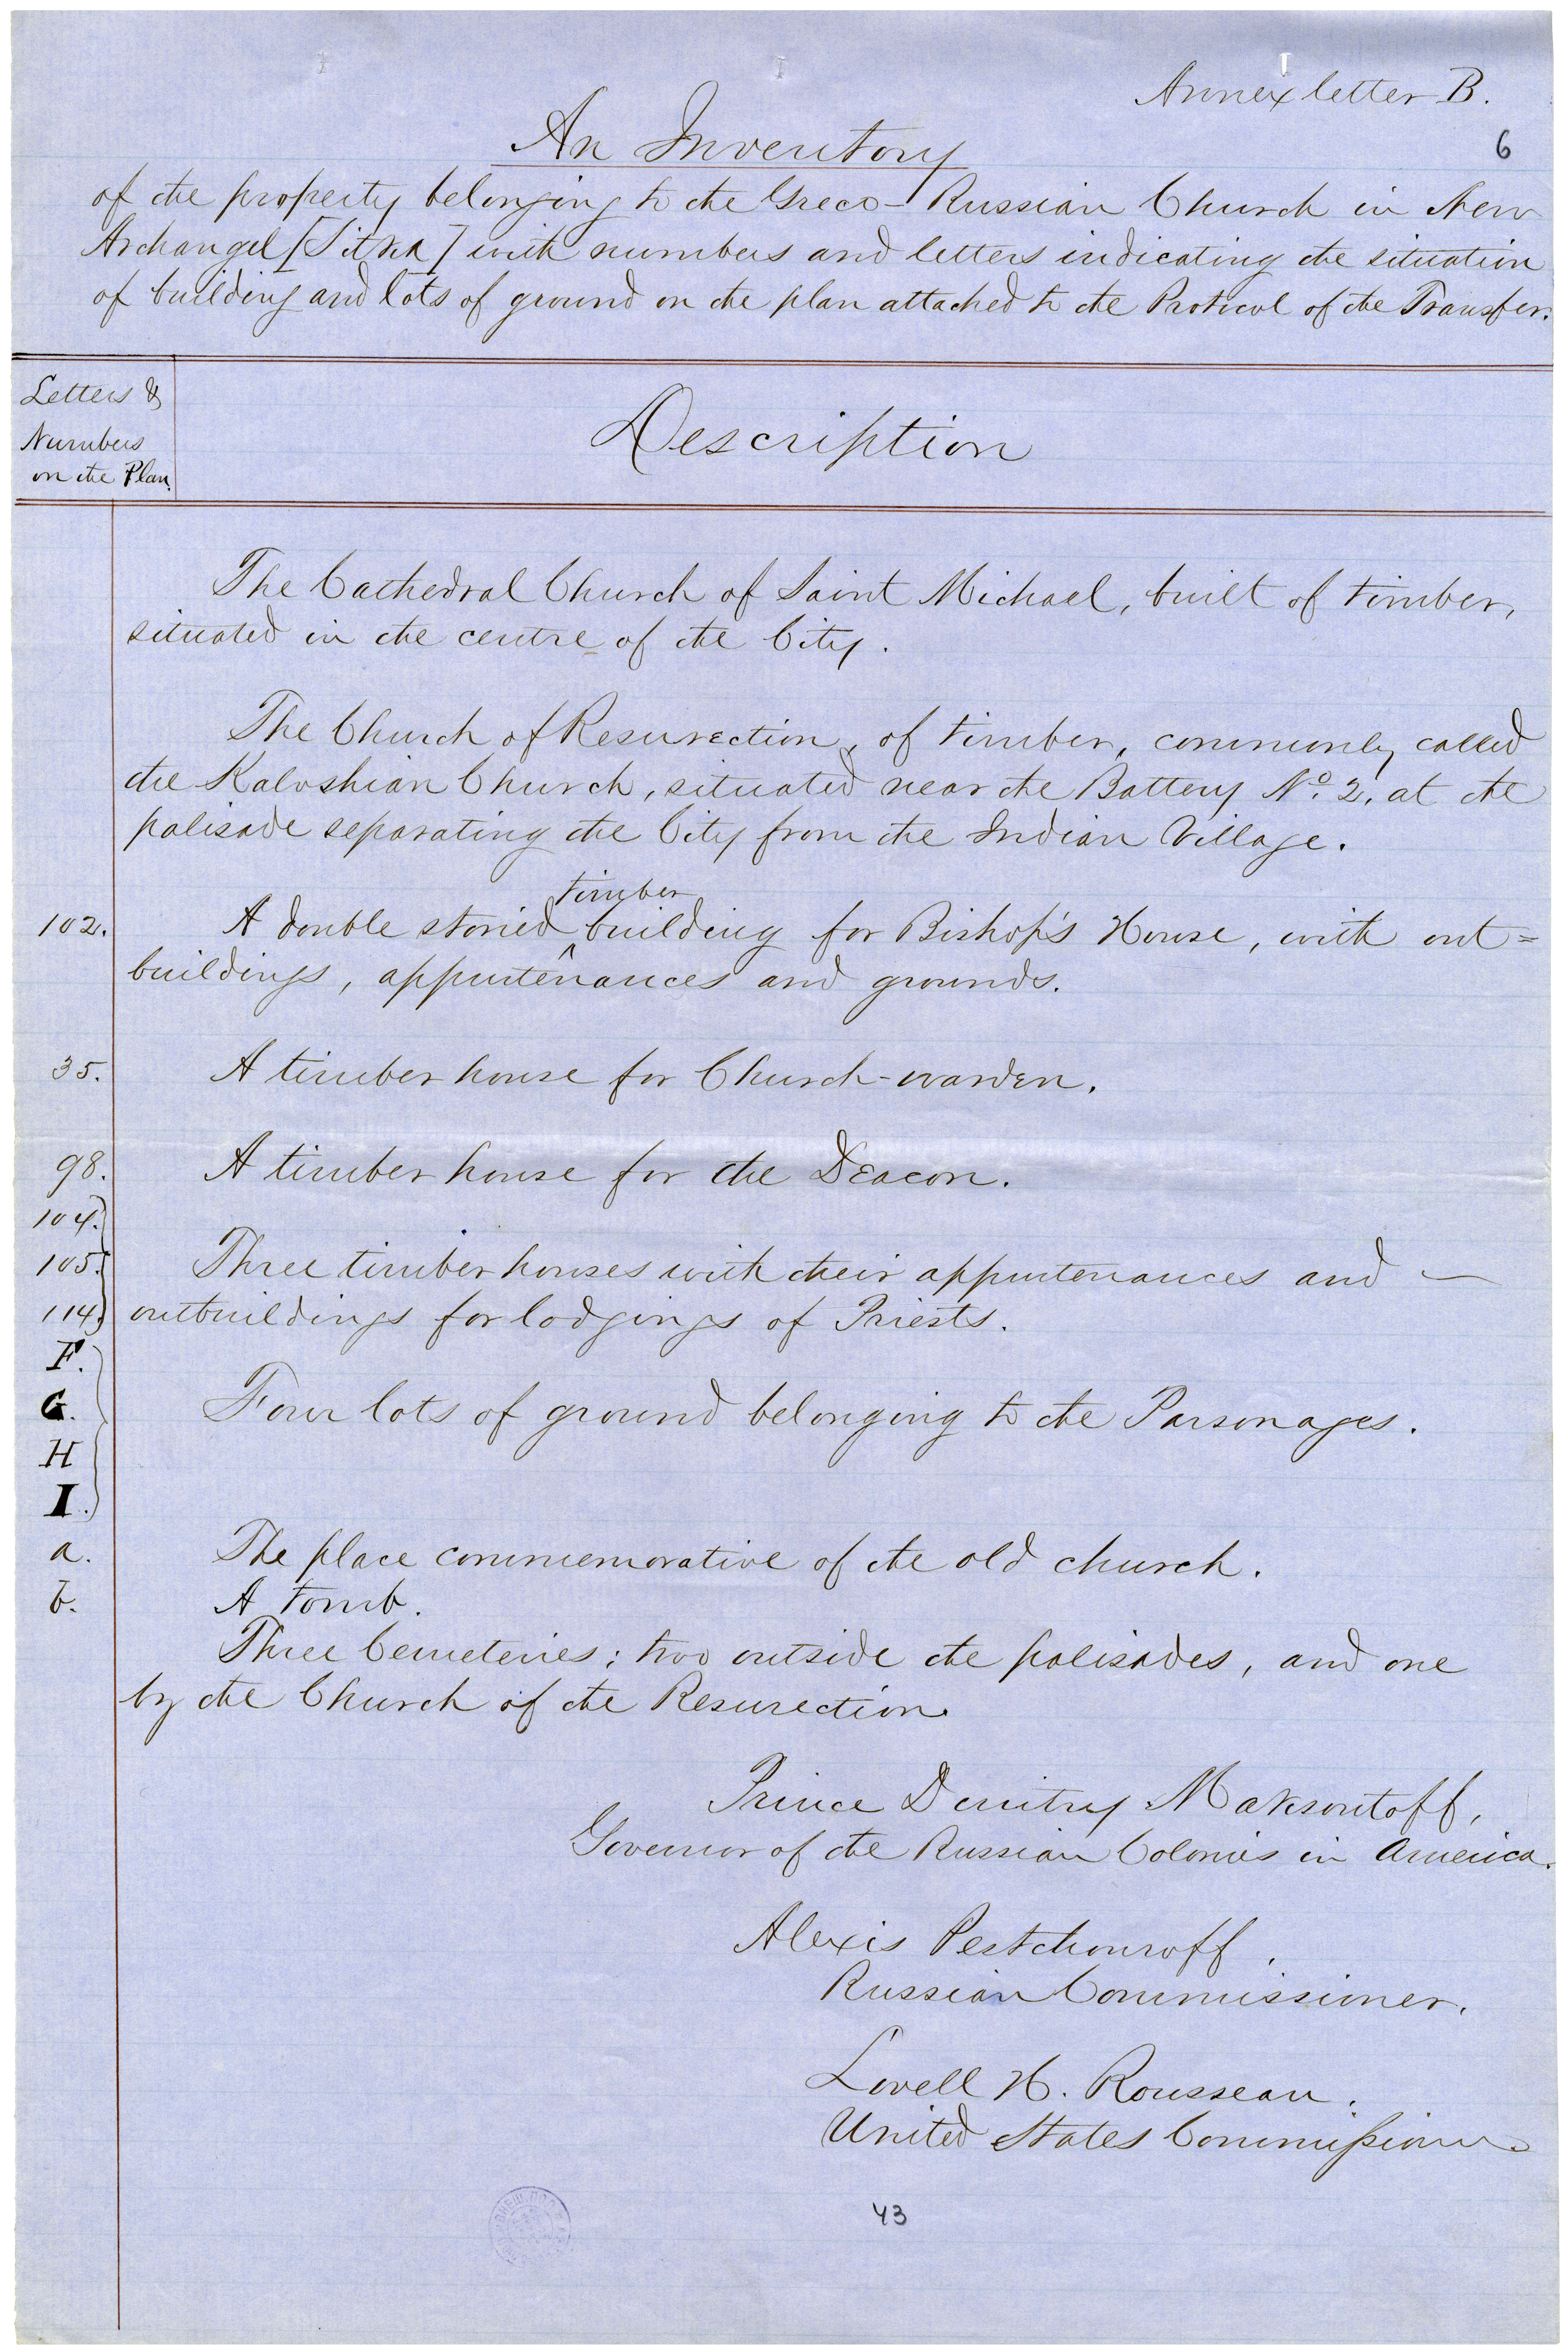 Annex letter B.
6
An Inventory
of the property belonging to the Greco-Russian Church in New
Archangel [Sitka] with numbers and letters indicating the situation
of building and lots of ground on the plan attached to the Protocol of the Transfer.
Letters &
Numbers
on the Plan.
Description
The Cathedral Church of Saint Michael, built of timber,
situated in the centre of the City.
The Church of Resurection, of timber, commonly called
the Kaloshian Church, situated near the Battery No. 2, at the
palisade separating the City from the Indian Village.
timber
102. A double storied ^ building for Bishop's House, with out=
buildings, appurtenances and grounds.
35. A timber house for Church-warden.
98. A timber house for the Deacon.
104.
105. Three timber houses with their appurtenances and —
114. outbuildings for lodgings of Priests.
F.
G. Four lots of ground belonging to the Parsonages.
H
I.
a. The place commemorative of the old church.
b. A tomb.
Three Cemeteries; two outside the palisades, and one
by the Church of the Resurection.
Prince Dmitry Maksoutoff,
Governor of the Russian Colonies in America.
Alexis Pestchouroff,
Russian Commissioner.
Lovell H. Rousseau.
United States Commissioner
43